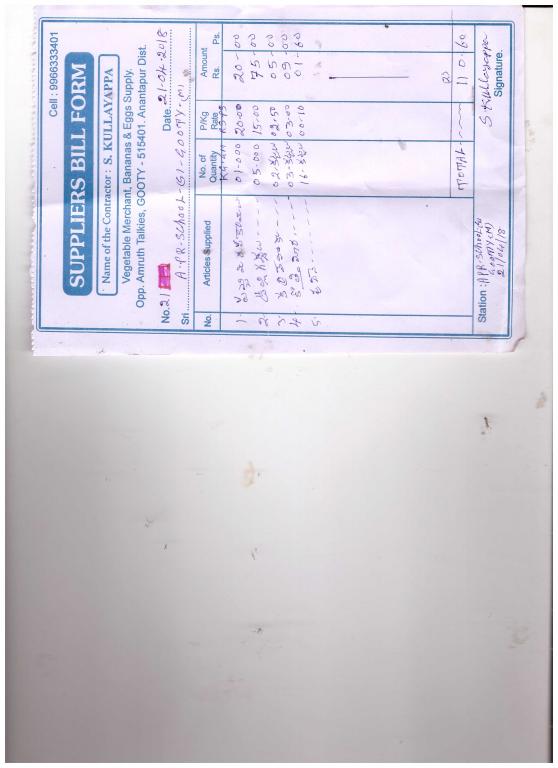 Cell : 9966333401
SUPPLIERS BILL FORM
Name of the Contractor : S. KULLAYAPPA
Vegetable Merchant, Bananas & Eggs Supply,
Opp. Amruth Talkies, GOOTY - 515401. Anantapur Dist.
No. 21 Date 21-04-2018
Sri A.P.R. SCHOOL (G) GOOTY (M)
No. Articles Supplied No. of Quantity P/Kg Rate Amount Rs. Ps.
1. 01-000 20.00 20-00
2. 05-000 15.00 75-00
3. 02- 02.50 05-00
4. 03- 03.00 09-00
5. 16- 00-10 01-60
TOTAL 110.60
Station : A.P.R. SCHOOL (G)
GOOTY (M)
21/04/18
S. Kullayappa
Signature.